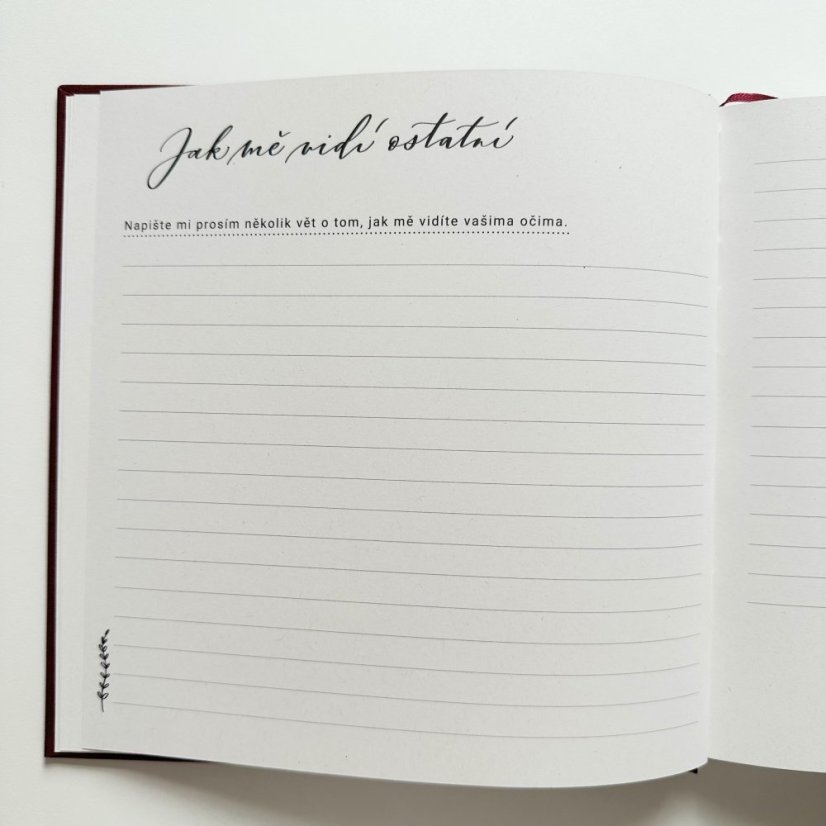 Jak mě vidí ostatní
Napište mi prosím několik vět o tom, jak mě vidíte vašima očima.